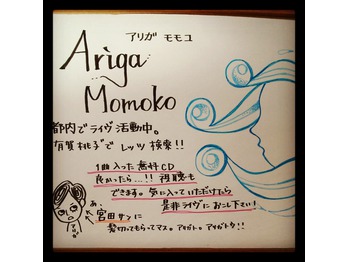 アリガ モモコ
Ariga
Momoko
都内でライヴ活動中。
有賀桃子で レッツ検索!!
1曲入った無料CD
良かったら...!! 視聴も
できます。気に入っていただけたら
是非ライヴにおこし下さい!
あ、
宮田サンに
髪切ってもらってマス。アリガトゥ。アリガトウ!!